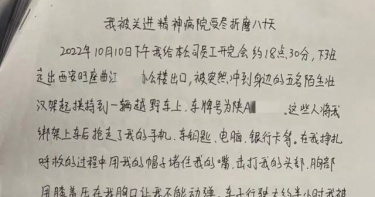 我被关进精神病院受尽折磨八十天
2022年10月10日下午我给本公司员工开完会约18点30分,下班
走出西安旺座曲江 办公楼出口,被突然冲到身边的五名陌生壮
汉架起挟持到一辆越野车上,车牌号为陕A 这些人将我
绑架上车后抢走了我的手机、车钥匙、电脑、银行卡等。在我挣扎
呼救的过程中用我的帽子堵住我的嘴,击打我的头部,胸部
用膝盖压在我胸口让我不能动弹,车子行驶大约半小时我被